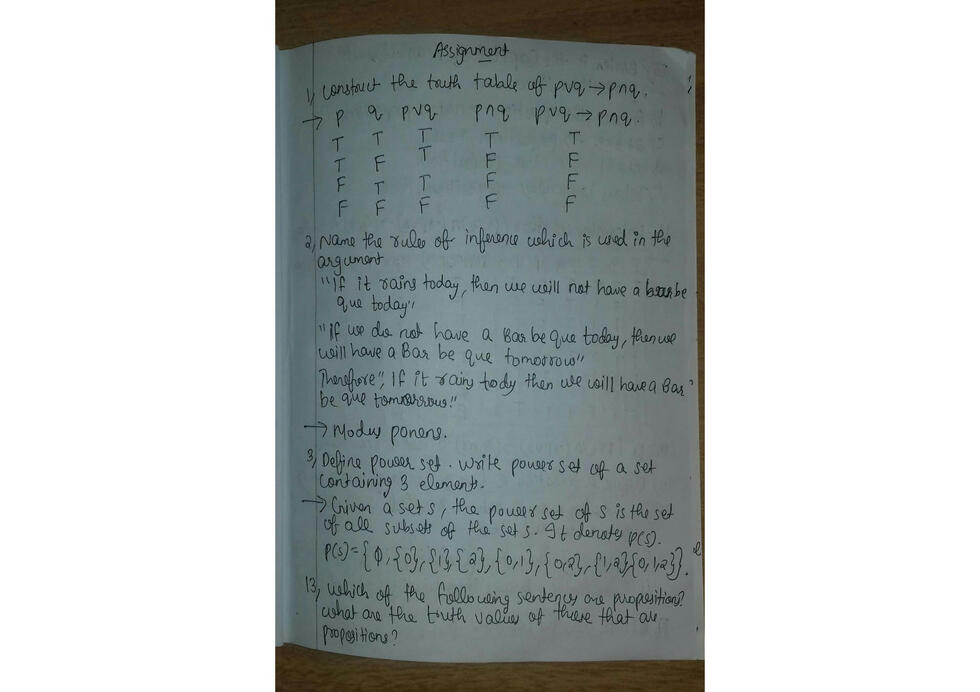 Assignment
1, Construct the truth table of p∨q → p∧q.
→ p q p∨q p∧q p∨q → p∧q.
T T T T T
T F T F F
F T T F F
F F F F F
2, Name the rules of inference which is used in the
argument
"If it rains today, then we will not have a be
que today"
"if we do not have a Bar be que today, then we
will have a Bar be que tomorrow"
Therefore", If it rains tody then we will have a Bar
be que tomorrow."
→ Modus ponens.
3, Define power set. Write power set of a set
containing 3 elements.
→ Given a set s, the power set of s is the set
of all subsets of the set s. It denotes p(s).
p(s) = {Φ, {0}, {1}, {2}, {0,1}, {0,2}, {1,2} {0,1,2}}.
13, which of the following sentences are propositions?
what are the truth values of these that are
propositions?